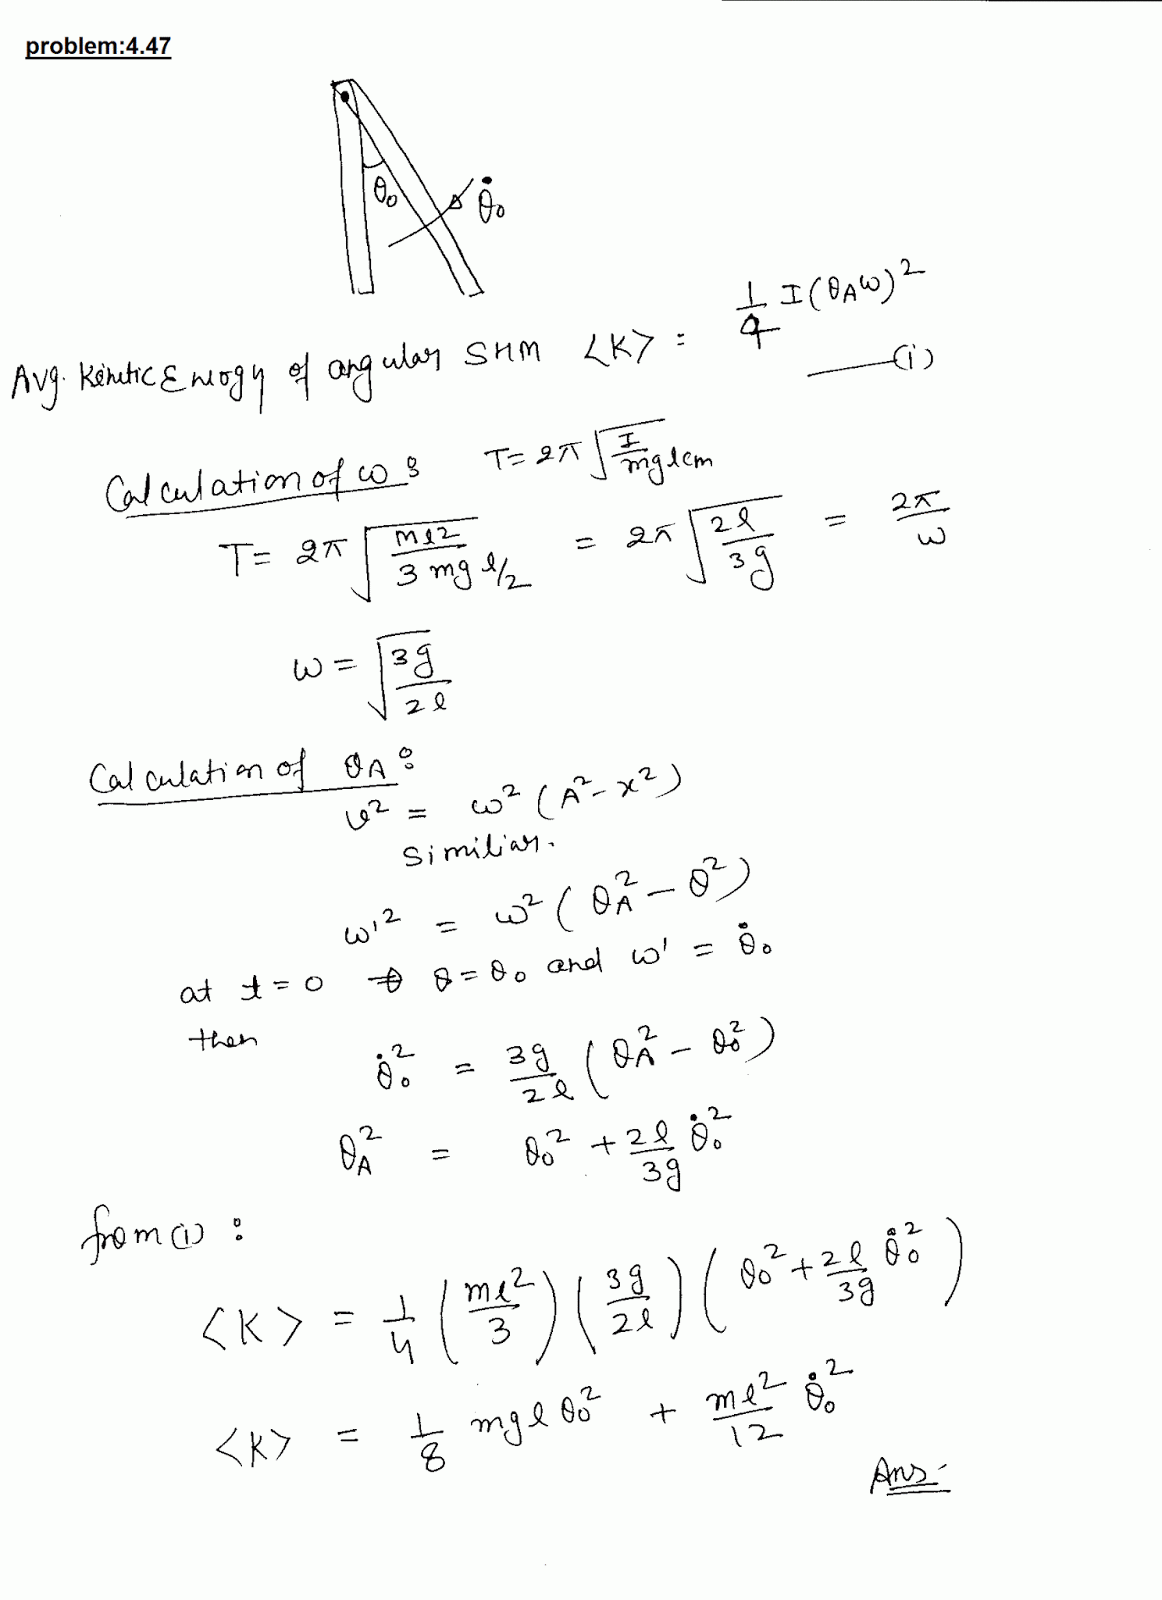 problem:4.47
θ₀ θ̇₀
Avg. Kinetic Energy of angular SHM <K> = 1/4 I(θ_A ω)² —(i)
Calculation of ω : T = 2π √(I/mglcm)
T = 2π √(ml²/(3 mg l/2)) = 2π √(2l/3g) = 2π/ω
ω = √(3g/2l)
Calculation of θ_A :
v² = ω² (A² - x²)
Similiar.
ω'² = ω² (θ_A² - θ²)
at t = 0 θ = θ₀ and ω' = θ̇₀
then
θ̇₀² = 3g/2l (θ_A² - θ₀²)
θ_A² = θ₀² + 2l/3g θ̇₀²
from (i) :
<K> = 1/4 (ml²/3) (3g/2l) (θ₀² + 2l/3g θ̇₀²)
<K> = 1/8 mgl θ₀² + ml²/12 θ̇₀²
Ans.